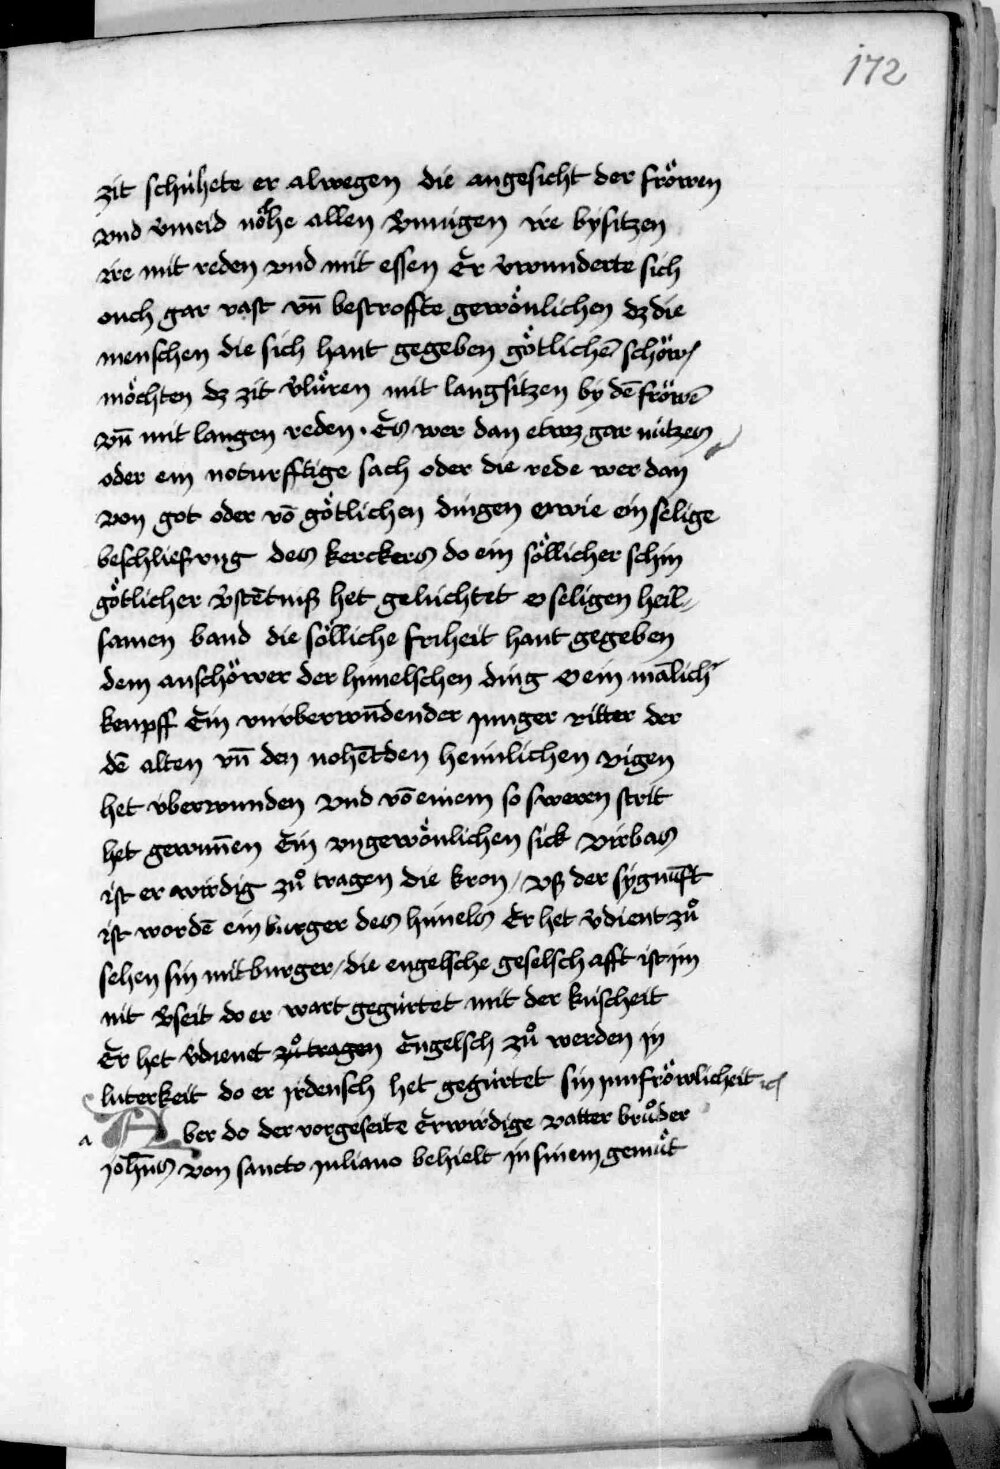 172
zit schühete er alwegen die angesicht der fröwen
vnd v̄meid nöhe allen vmügen ire bysitzen
ire mit reden vnd mit essen Er v̄wunderte sich
ouch gar vast vn̄ bestroffte gewönlichen dz die
menschen die sich hant gegeben götlicher̄ schöw
möchten dz zit v̄lüren mit langsitzen by dē fröwē
vn̄ mit langen reden · Es wer dan etwz gar nützes
oder ein noturfftige sach oder die rede wer dan
von got oder vō götlichen dingen O wie ein selige
beschliesvng des kerckers do ein söllicher schin
götlicher v̄stētniß het gelüchtet o seligen heil-
samen band die sölliche friheit hant gegeben
dem anschöwer der himelschen ding O ein mālich
kenpff Ein vnvberwn̄dender junger ritter der
dē alten vn̄ den nohētden heimlichen vigen
het vberwunden vnd vō einem so sweren strit
het gewun̄en Ein vngewönlichen sick virbas
ist er wirdig zů tragen die kron / vß der sygnūft
ist wordē ein burger des himels Er het v̄dient zů
sehen sin mitburger / die engelsche geselschafft ist im
nit v̄seit do er wart gegürtet mit der küscheit
Er het v̄dienet zů tragen Engelsch zů werden in
luterkeit do er irdensch het gegürtet sin junfröwlicheit
a Aber do der vorgeseite Erwirdige vatter brůder
joh̄nes von sancto juliano behielt in sinem gemüt